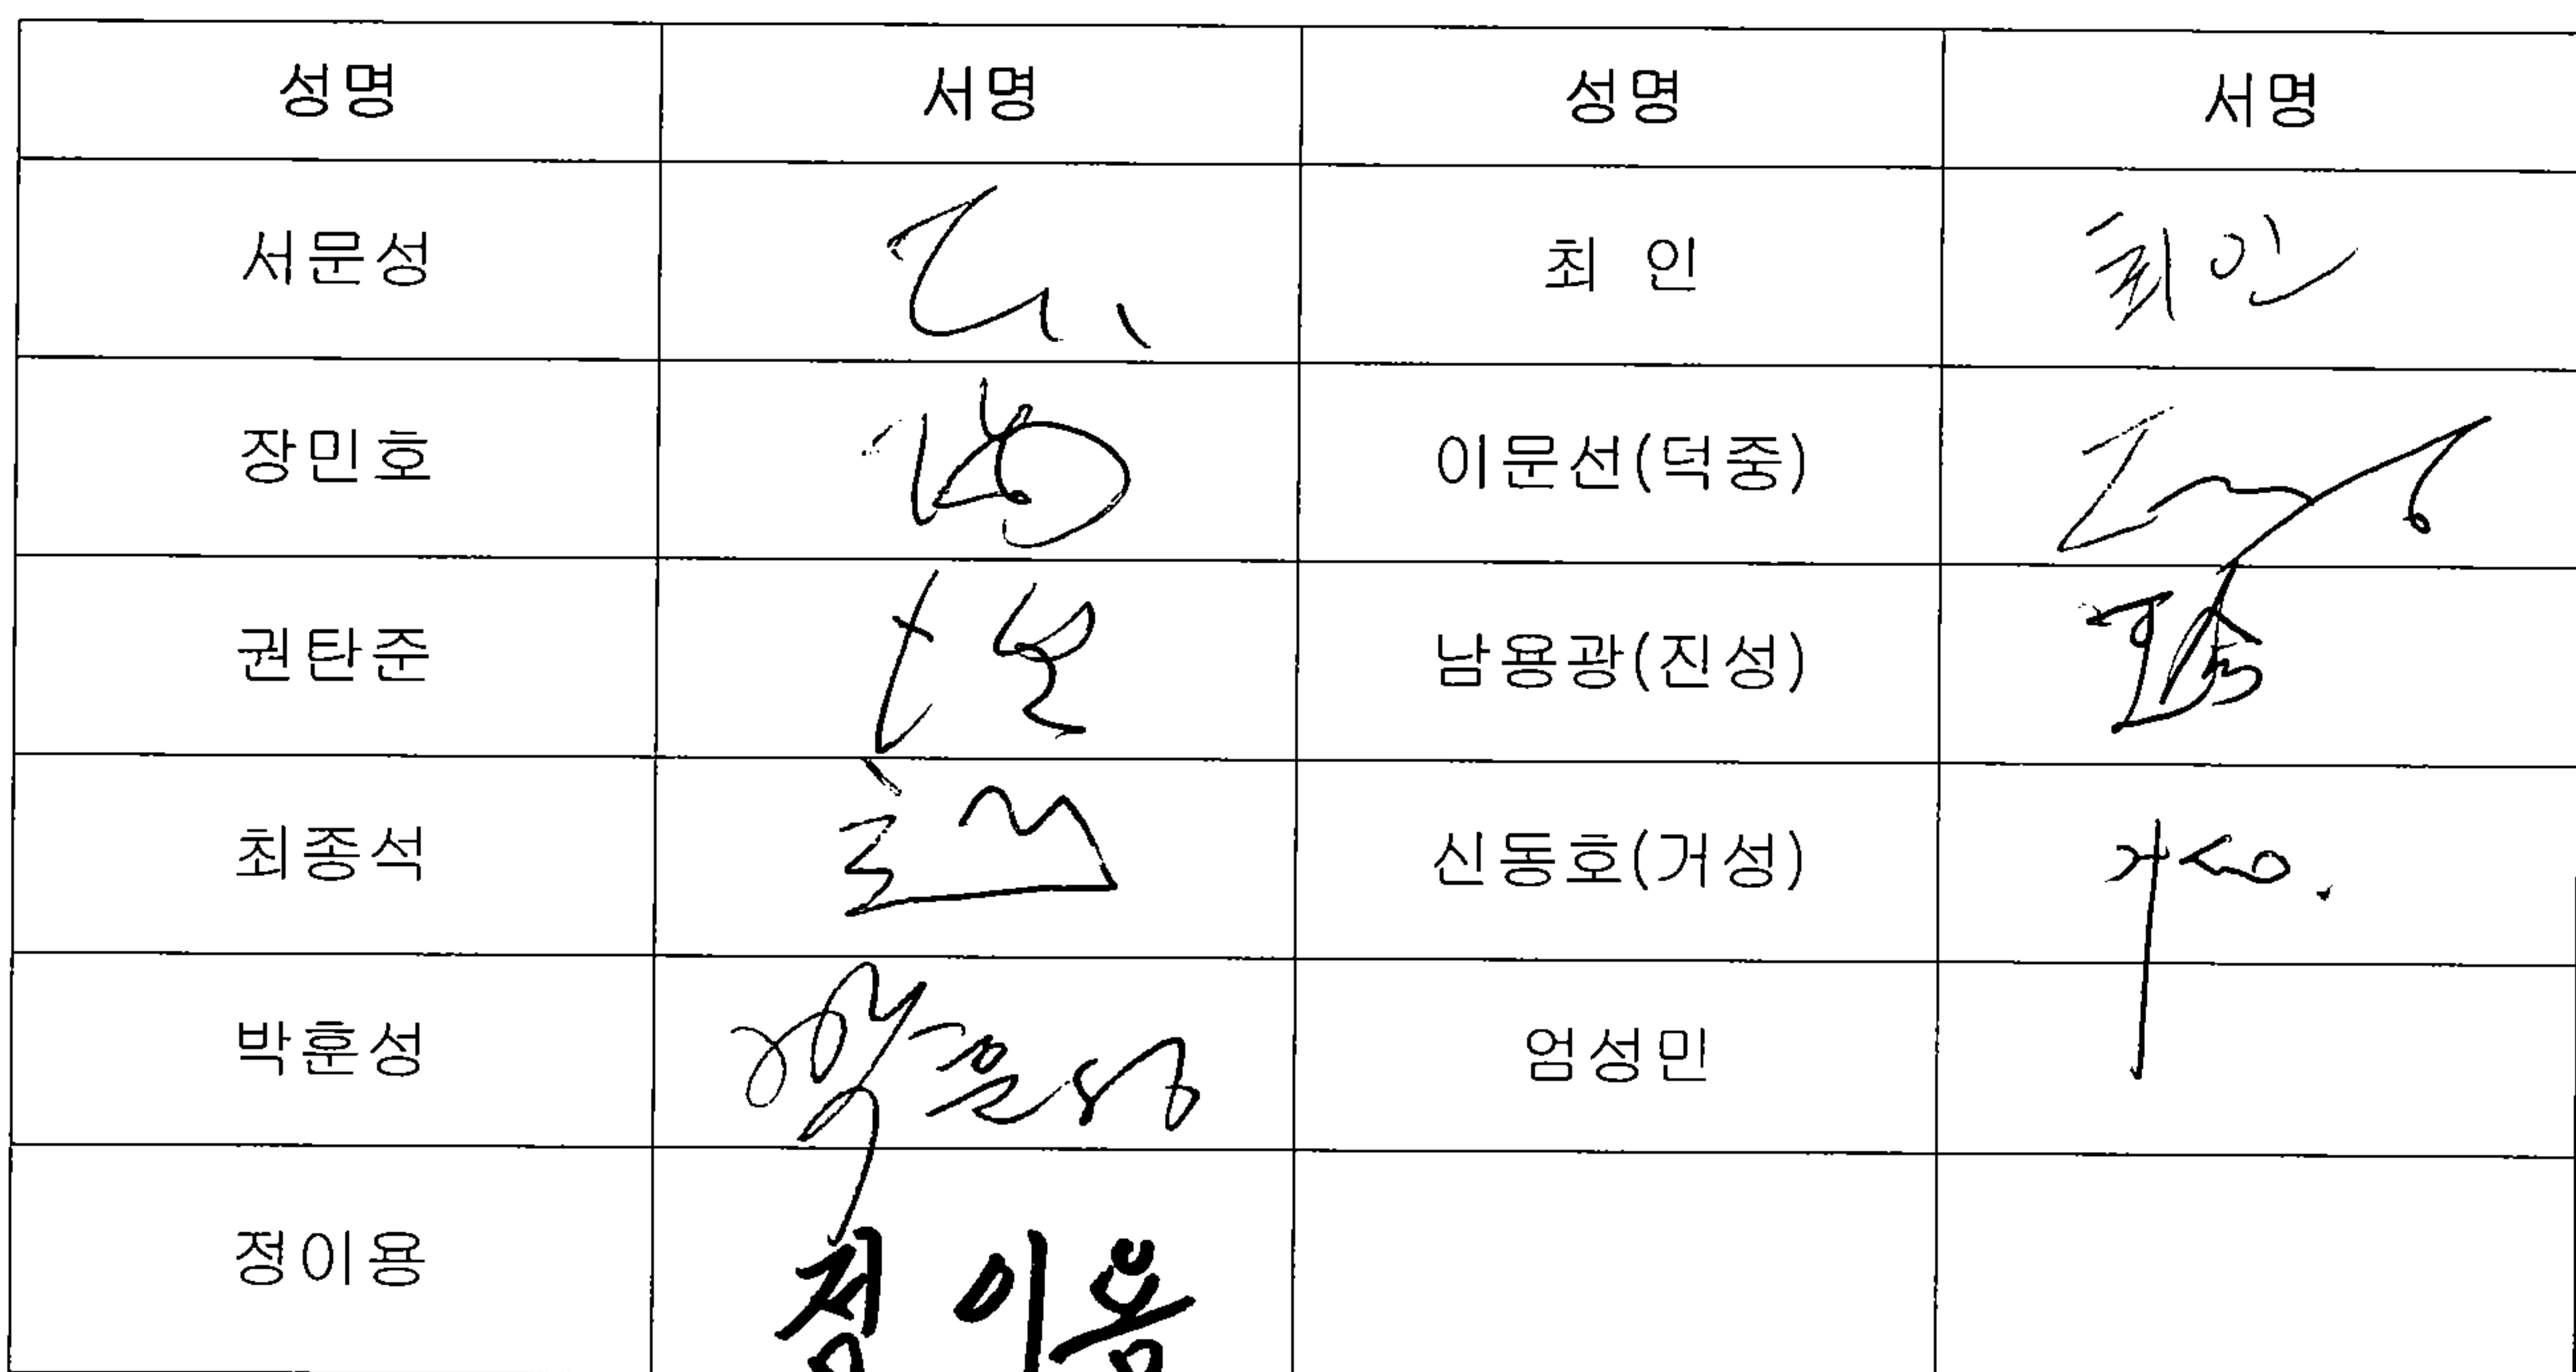 성명 서명 성명 서명
서문성 최 인 최인
장민호 이문선(덕중)
권탄준 남용광(진성)
최종석 신동호(거성)
박훈성 박훈성 엄성민
정이용 정이용